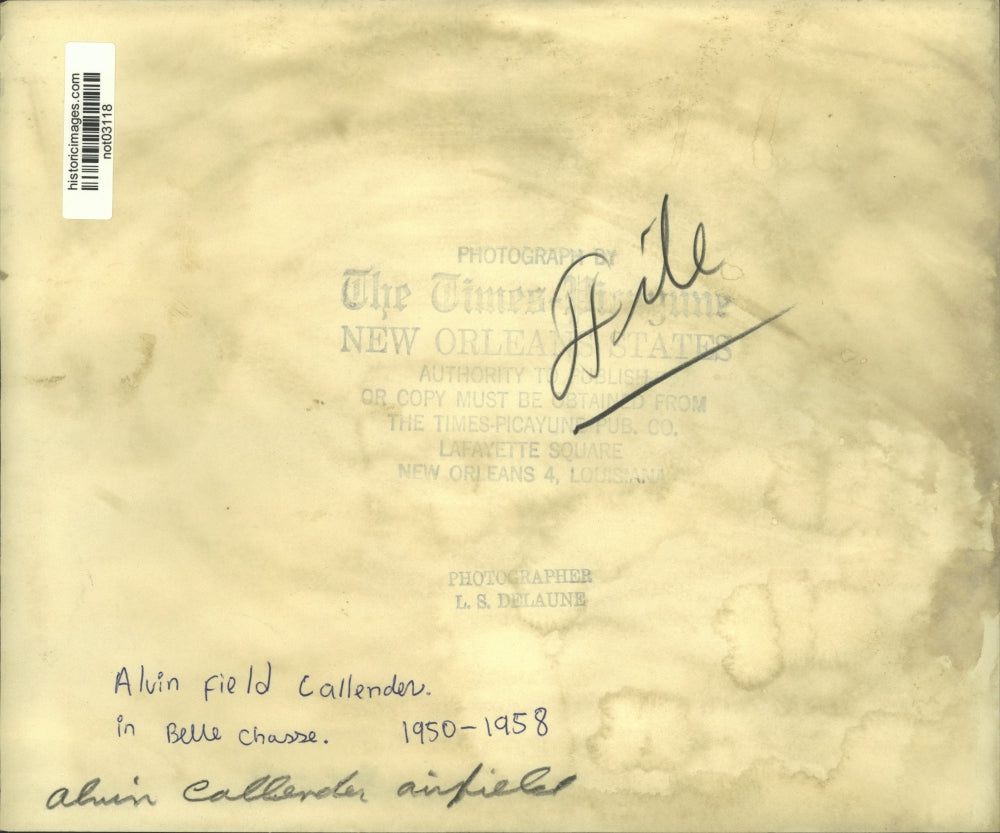 historicimages.com
not03118
PHOTOGRAPH BY
The Times-Picayune
NEW ORLEANS STATES
AUTHORITY TO PUBLISH
OR COPY MUST BE OBTAINED FROM
THE TIMES-PICAYUNE PUB. CO.
LAFAYETTE SQUARE
NEW ORLEANS 4, LOUISIANA
File
PHOTOGRAPHER
L. S. DELAUNE
Alvin Field Callender.
in Belle Chasse. 1950-1958
alvin callender airfield